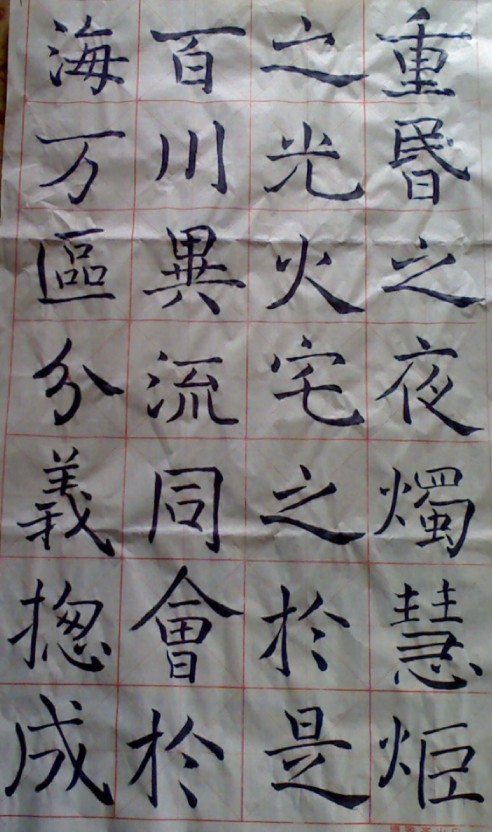 重昬之夜燭慧炬
之光火宅之於是
百川異流同會於
海万區分義揔成